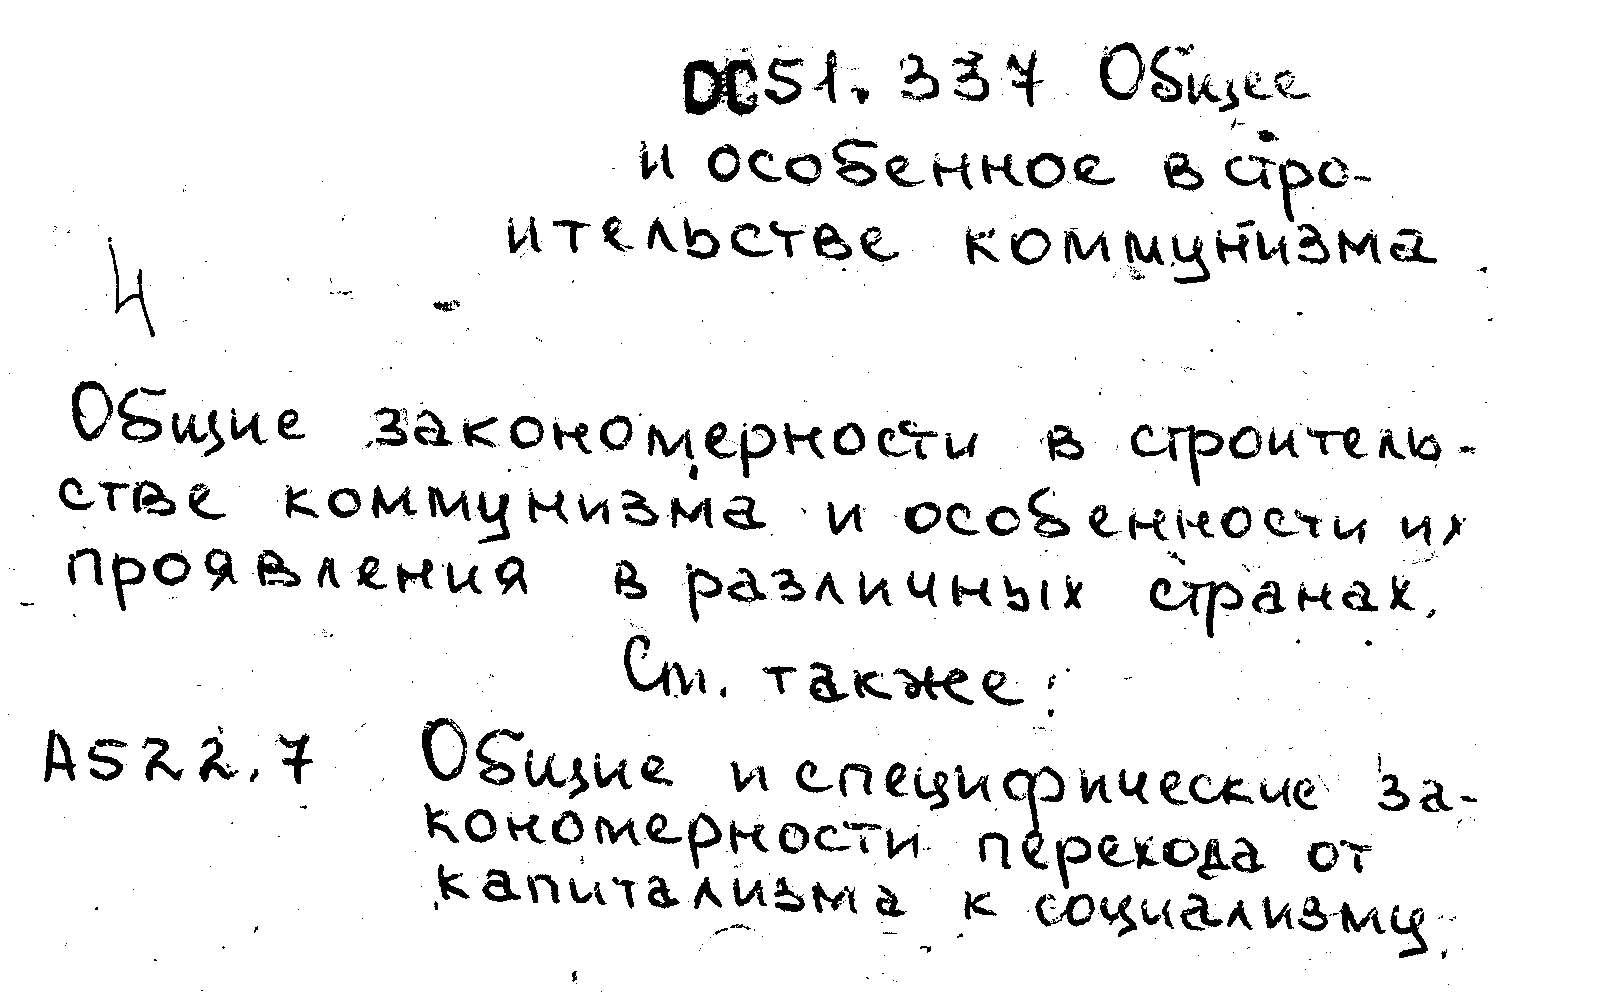 ОС51.337 Общее
и особенное в стро-
ительстве коммунизма
4
Общие закономерности в строитель-
стве коммунизма и особенности их
проявления в различных странах.
См. также:
А522.7 Общие и специфические за-
кономерности перехода от
капитализма к социализму.